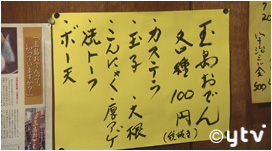 玉島おでん
各種100円
(税抜き)
・カステラ ・大根
・玉子
・こんにゃく ・厚アゲ
・焼トーフ
ボー天
500
©ytv